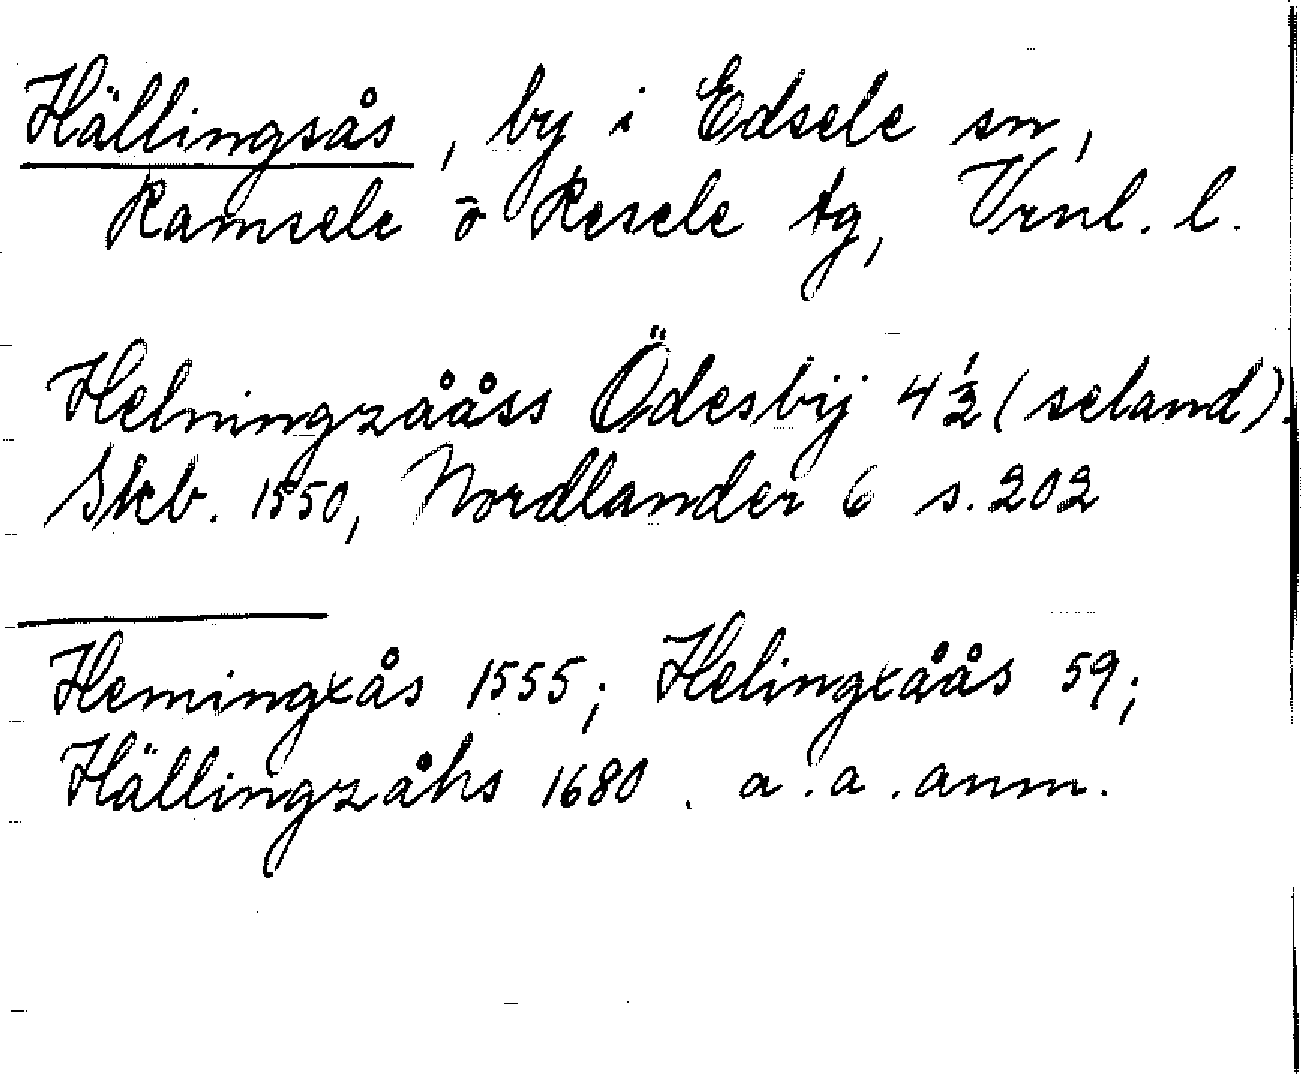 Hällingsås, by i Edsele sn,
Ramsele o Resele tg, Vrnl. l.
Helningzååss Ödesbÿ 4½ (seland).
Skb. 1550, Nordlander 6 s. 202
Hemingxås 1555; Helingxåås 59;
Hällingzåhs 1680. a.a. anm.